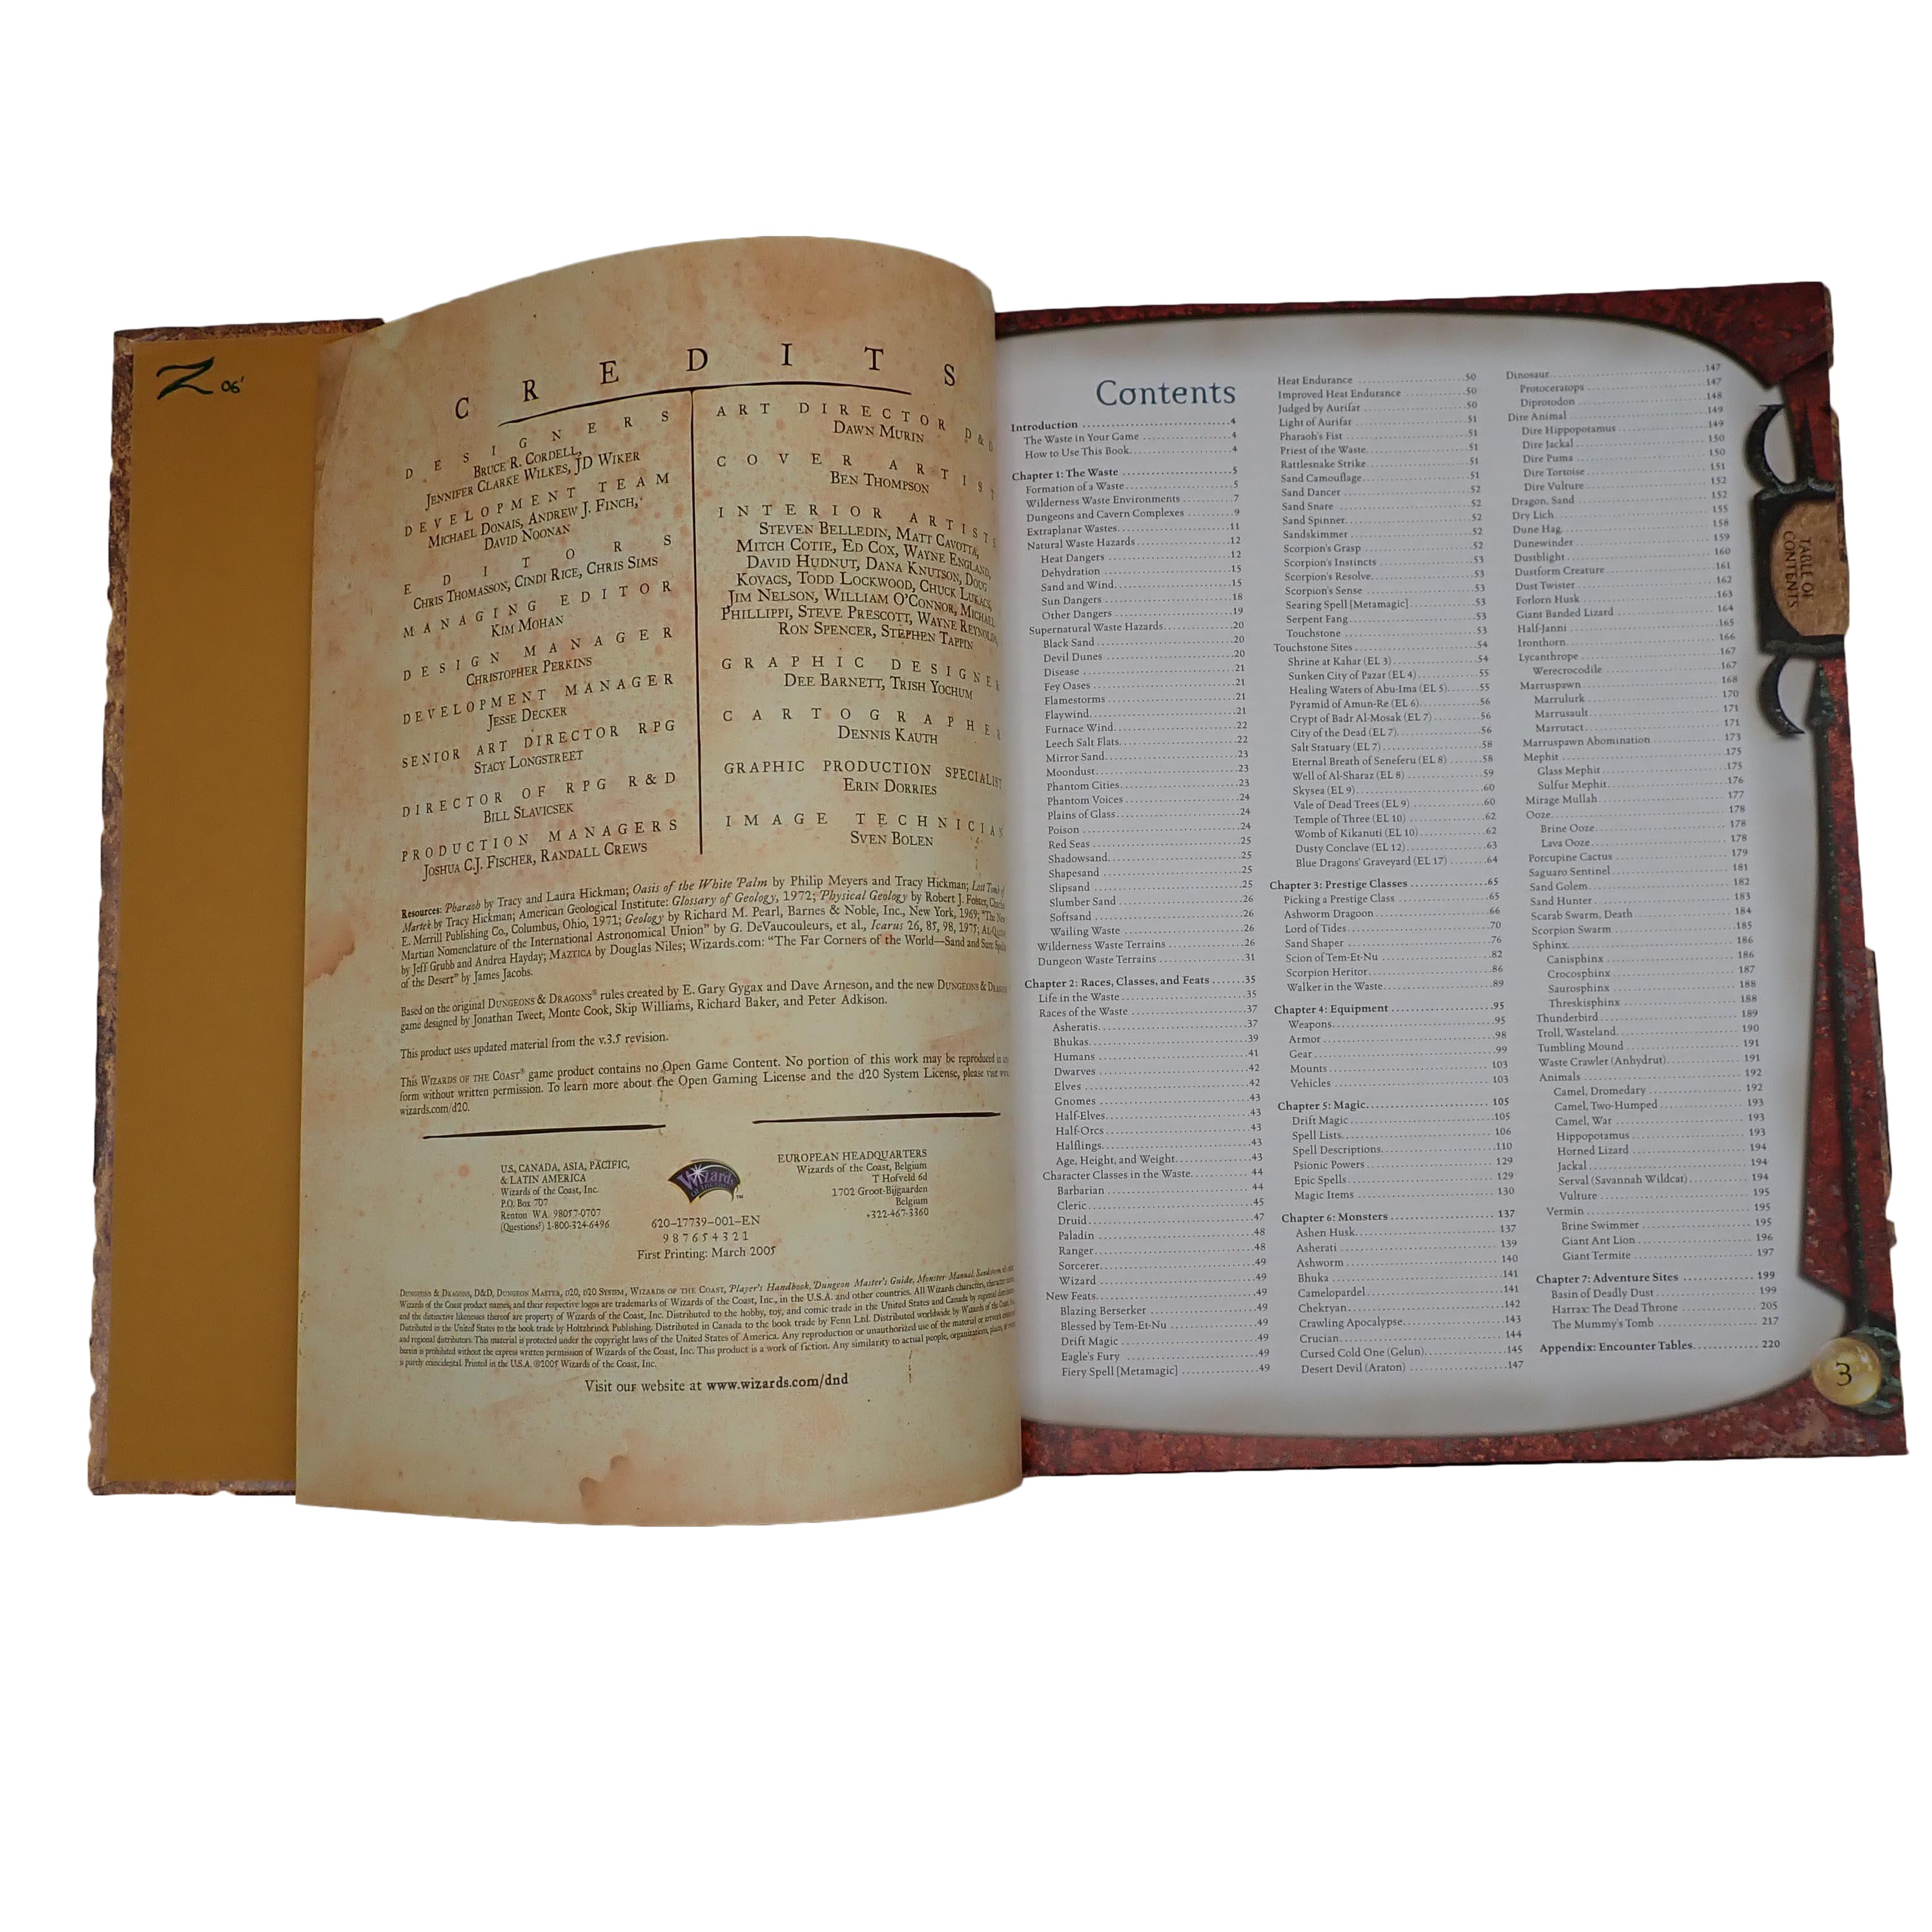 Z 06'
CREDITS
DESIGNERS
BRUCE R. CORDELL,
JENNIFER CLARKE WILKES, JD WIKER
DEVELOPMENT TEAM
MICHAEL DONAIS, ANDREW J. FINCH,
DAVID NOONAN
EDITORS
CHRIS THOMASSON, CINDI RICE, CHRIS SIMS
MANAGING EDITOR
KIM MOHAN
DESIGN MANAGER
CHRISTOPHER PERKINS
DEVELOPMENT MANAGER
JESSE DECKER
SENIOR ART DIRECTOR RPG
STACY LONGSTREET
DIRECTOR OF RPG R&D
BILL SLAVICSEK
PRODUCTION MANAGERS
JOSHUA C.J. FISCHER, RANDALL CREWS
ART DIRECTOR D&D
DAWN MURIN
COVER ARTIST
BEN THOMPSON
INTERIOR ARTISTS
STEVEN BELLEDIN, MATT CAVOTTA,
MITCH COTIE, ED COX, WAYNE ENGLAND,
DAVID HUDNUT, DANA KNUTSON, DOUG
KOVACS, TODD LOCKWOOD, CHUCK LUKACS,
JIM NELSON, WILLIAM O'CONNOR, MICHAEL
PHILLIPPI, STEVE PRESCOTT, WAYNE REYNOLDS,
RON SPENCER, STEPHEN TAPPIN
GRAPHIC DESIGNER
DEE BARNETT, TRISH YOCHUM
CARTOGRAPHER
DENNIS KAUTH
GRAPHIC PRODUCTION SPECIALIST
ERIN DORRIES
IMAGE TECHNICIAN
SVEN BOLEN
Resources: Pharaoh by Tracy and Laura Hickman; Oasis of the White Palm by Philip Meyers and Tracy Hickman; Lost Tomb of
Martek by Tracy Hickman; American Geological Institute: Glossary of Geology, 1972; Physical Geology by Robert J. Foster, Charles
E. Merrill Publishing Co., Columbus, Ohio, 1971; Geology by Richard M. Pearl, Barnes & Noble, Inc., New York, 1969; "The New
Martian Nomenclature of the International Astronomical Union" by G. DeVaucouleurs, et al., Icarus 26, 85, 98, 1975;
by Jeff Grubb and Andrea Hayday; MAZTICA by Douglas Niles; Wizards.com: "The Far Corners of the World—Sand and Sun:
of the Desert" by James Jacobs.
Based on the original DUNGEONS & DRAGONS® rules created by E. Gary Gygax and Dave Arneson, and the new DUNGEONS &
game designed by Jonathan Tweet, Monte Cook, Skip Williams, Richard Baker, and Peter Adkison.
This product uses updated material from the v.3.5 revision.
This WIZARDS OF THE COAST® game product contains no Open Game Content. No portion of this work may be reproduced in any
form without written permission. To learn more about the Open Gaming License and the d20 System License, please visit
wizards.com/d20.
U.S., CANADA, ASIA, PACIFIC,
& LATIN AMERICA
Wizards of the Coast, Inc.
P.O. Box 707
Renton WA 98057-0707
(Questions?) 1-800-324-6496
Wizards
OF THE COAST
TM
620–17739–001–EN
9 8 7 6 5 4 3 2 1
First Printing: March 2005
EUROPEAN HEADQUARTERS
Wizards of the Coast, Belgium
T Hofveld 6d
1702 Groot-Bijgaarden
Belgium
+322-467-3360
DUNGEONS & DRAGONS, D&D, DUNGEON MASTER, d20, d20 SYSTEM, WIZARDS OF THE COAST, Player's Handbook, Dungeon Master's Guide, Monster Manual, Sandstorm,
Wizards of the Coast product names, and their respective logos are trademarks of Wizards of the Coast, Inc., in the U.S.A. and other countries. All Wizards characters, character names,
and the distinctive likenesses thereof are property of Wizards of the Coast, Inc. Distributed to the hobby, toy, and comic trade in the United States and Canada by regional distributors.
Distributed in the United States to the book trade by Holtzbrinck Publishing. Distributed in Canada to the book trade by Fenn Ltd. Distributed worldwide by Wizards of the Coast, Inc.
and regional distributors. This material is protected under the copyright laws of the United States of America. Any reproduction or unauthorized use of the material or artwork contained
herein is prohibited without the express written permission of Wizards of the Coast, Inc. This product is a work of fiction. Any similarity to actual people, organizations, places, or events
is purely coincidental. Printed in the U.S.A. ©2005 Wizards of the Coast, Inc.
Visit our website at www.wizards.com/dnd
Contents
Introduction 4
The Waste in Your Game 4
How to Use This Book 4
Chapter 1: The Waste 5
Formation of a Waste 5
Wilderness Waste Environments 7
Dungeons and Cavern Complexes 9
Extraplanar Wastes 11
Natural Waste Hazards 12
Heat Dangers 12
Dehydration 15
Sand and Wind 15
Sun Dangers 18
Other Dangers 19
Supernatural Waste Hazards 20
Black Sand 20
Devil Dunes 20
Disease 21
Fey Oases 21
Flamestorms 21
Flaywind 21
Furnace Wind 22
Leech Salt Flats 22
Mirror Sand 23
Moondust 23
Phantom Cities 23
Phantom Voices 24
Plains of Glass 24
Poison 24
Red Seas 25
Shadowsand 25
Shapesand 25
Slipsand 25
Slumber Sand 26
Softsand 26
Wailing Waste 26
Wilderness Waste Terrains 26
Dungeon Waste Terrains 31
Chapter 2: Races, Classes, and Feats 35
Life in the Waste 35
Races of the Waste 37
Asheratis 37
Bhukas 39
Humans 41
Dwarves 42
Elves 42
Gnomes 43
Half-Elves 43
Half-Orcs 43
Halflings 43
Age, Height, and Weight 43
Character Classes in the Waste 44
Barbarian 44
Cleric 45
Druid 47
Paladin 48
Ranger 48
Sorcerer 49
Wizard 49
New Feats 49
Blazing Berserker 49
Blessed by Tem-Et-Nu 49
Drift Magic 49
Eagle's Fury 49
Fiery Spell [Metamagic] 49
Heat Endurance 50
Improved Heat Endurance 50
Judged by Aurifar 50
Light of Aurifar 51
Pharaoh's Fist 51
Priest of the Waste 51
Rattlesnake Strike 51
Sand Camouflage 51
Sand Dancer 52
Sand Snare 52
Sand Spinner 52
Sandskimmer 52
Scorpion's Grasp 52
Scorpion's Instincts 53
Scorpion's Resolve 53
Scorpion's Sense 53
Searing Spell [Metamagic] 53
Serpent Fang 53
Touchstone 53
Touchstone Sites 54
Shrine at Kahar (EL 3) 54
Sunken City of Pazar (EL 4) 55
Healing Waters of Abu-Ima (EL 5) 55
Pyramid of Amun-Re (EL 6) 56
Crypt of Badr Al-Mosak (EL 7) 56
City of the Dead (EL 7) 56
Salt Statuary (EL 7) 58
Eternal Breath of Seneferu (EL 8) 58
Well of Al-Sharaz (EL 8) 59
Skysea (EL 9) 60
Vale of Dead Trees (EL 9) 60
Temple of Three (EL 10) 62
Womb of Kikanuti (EL 10) 62
Dusty Conclave (EL 12) 63
Blue Dragons' Graveyard (EL 17) 64
Chapter 3: Prestige Classes 65
Picking a Prestige Class 65
Ashworm Dragoon 66
Lord of Tides 70
Sand Shaper 76
Scion of Tem-Et-Nu 82
Scorpion Heritor 86
Walker in the Waste 89
Chapter 4: Equipment 95
Weapons 95
Armor 98
Gear 99
Mounts 103
Vehicles 103
Chapter 5: Magic 105
Drift Magic 105
Spell Lists 106
Spell Descriptions 110
Psionic Powers 129
Epic Spells 129
Magic Items 130
Chapter 6: Monsters 137
Ashen Husk 137
Asherati 139
Ashworm 140
Bhuka 141
Camelopardel 141
Chekryan 142
Crawling Apocalypse 143
Crucian 144
Cursed Cold One (Gelun) 145
Desert Devil (Araton) 147
Dinosaur 147
Protoceratops 147
Diprotodon 148
Dire Animal 149
Dire Hippopotamus 149
Dire Jackal 150
Dire Puma 150
Dire Tortoise 151
Dire Vulture 152
Dragon, Sand 152
Dry Lich 155
Dune Hag 158
Dunewinder 159
Dustblight 160
Dustform Creature 161
Dust Twister 162
Forlorn Husk 163
Giant Banded Lizard 164
Half-Janni 165
Ironthorn 166
Lycanthrope 167
Werecrocodile 167
Marruspawn 168
Marrulurk 170
Marrusault 171
Marrutact 171
Marruspawn Abomination 173
Mephit 175
Glass Mephit 175
Sulfur Mephit 176
Mirage Mullah 177
Ooze 178
Brine Ooze 178
Lava Ooze 178
Porcupine Cactus 179
Saguaro Sentinel 181
Sand Golem 182
Sand Hunter 183
Scarab Swarm, Death 184
Scorpion Swarm 185
Sphinx 186
Canisphinx 186
Crocosphinx 187
Saurosphinx 188
Threskisphinx 188
Thunderbird 189
Troll, Wasteland 190
Tumbling Mound 191
Waste Crawler (Anhydrut) 191
Animals 192
Camel, Dromedary 192
Camel, Two-Humped 193
Camel, War 193
Hippopotamus 193
Horned Lizard 194
Jackal 194
Serval (Savannah Wildcat) 194
Vulture 195
Vermin 195
Brine Swimmer 195
Giant Ant Lion 196
Giant Termite 197
Chapter 7: Adventure Sites 199
Basin of Deadly Dust 199
Harrax: The Dead Throne 205
The Mummy's Tomb 217
Appendix: Encounter Tables 220
TABLE OF
CONTENTS
3